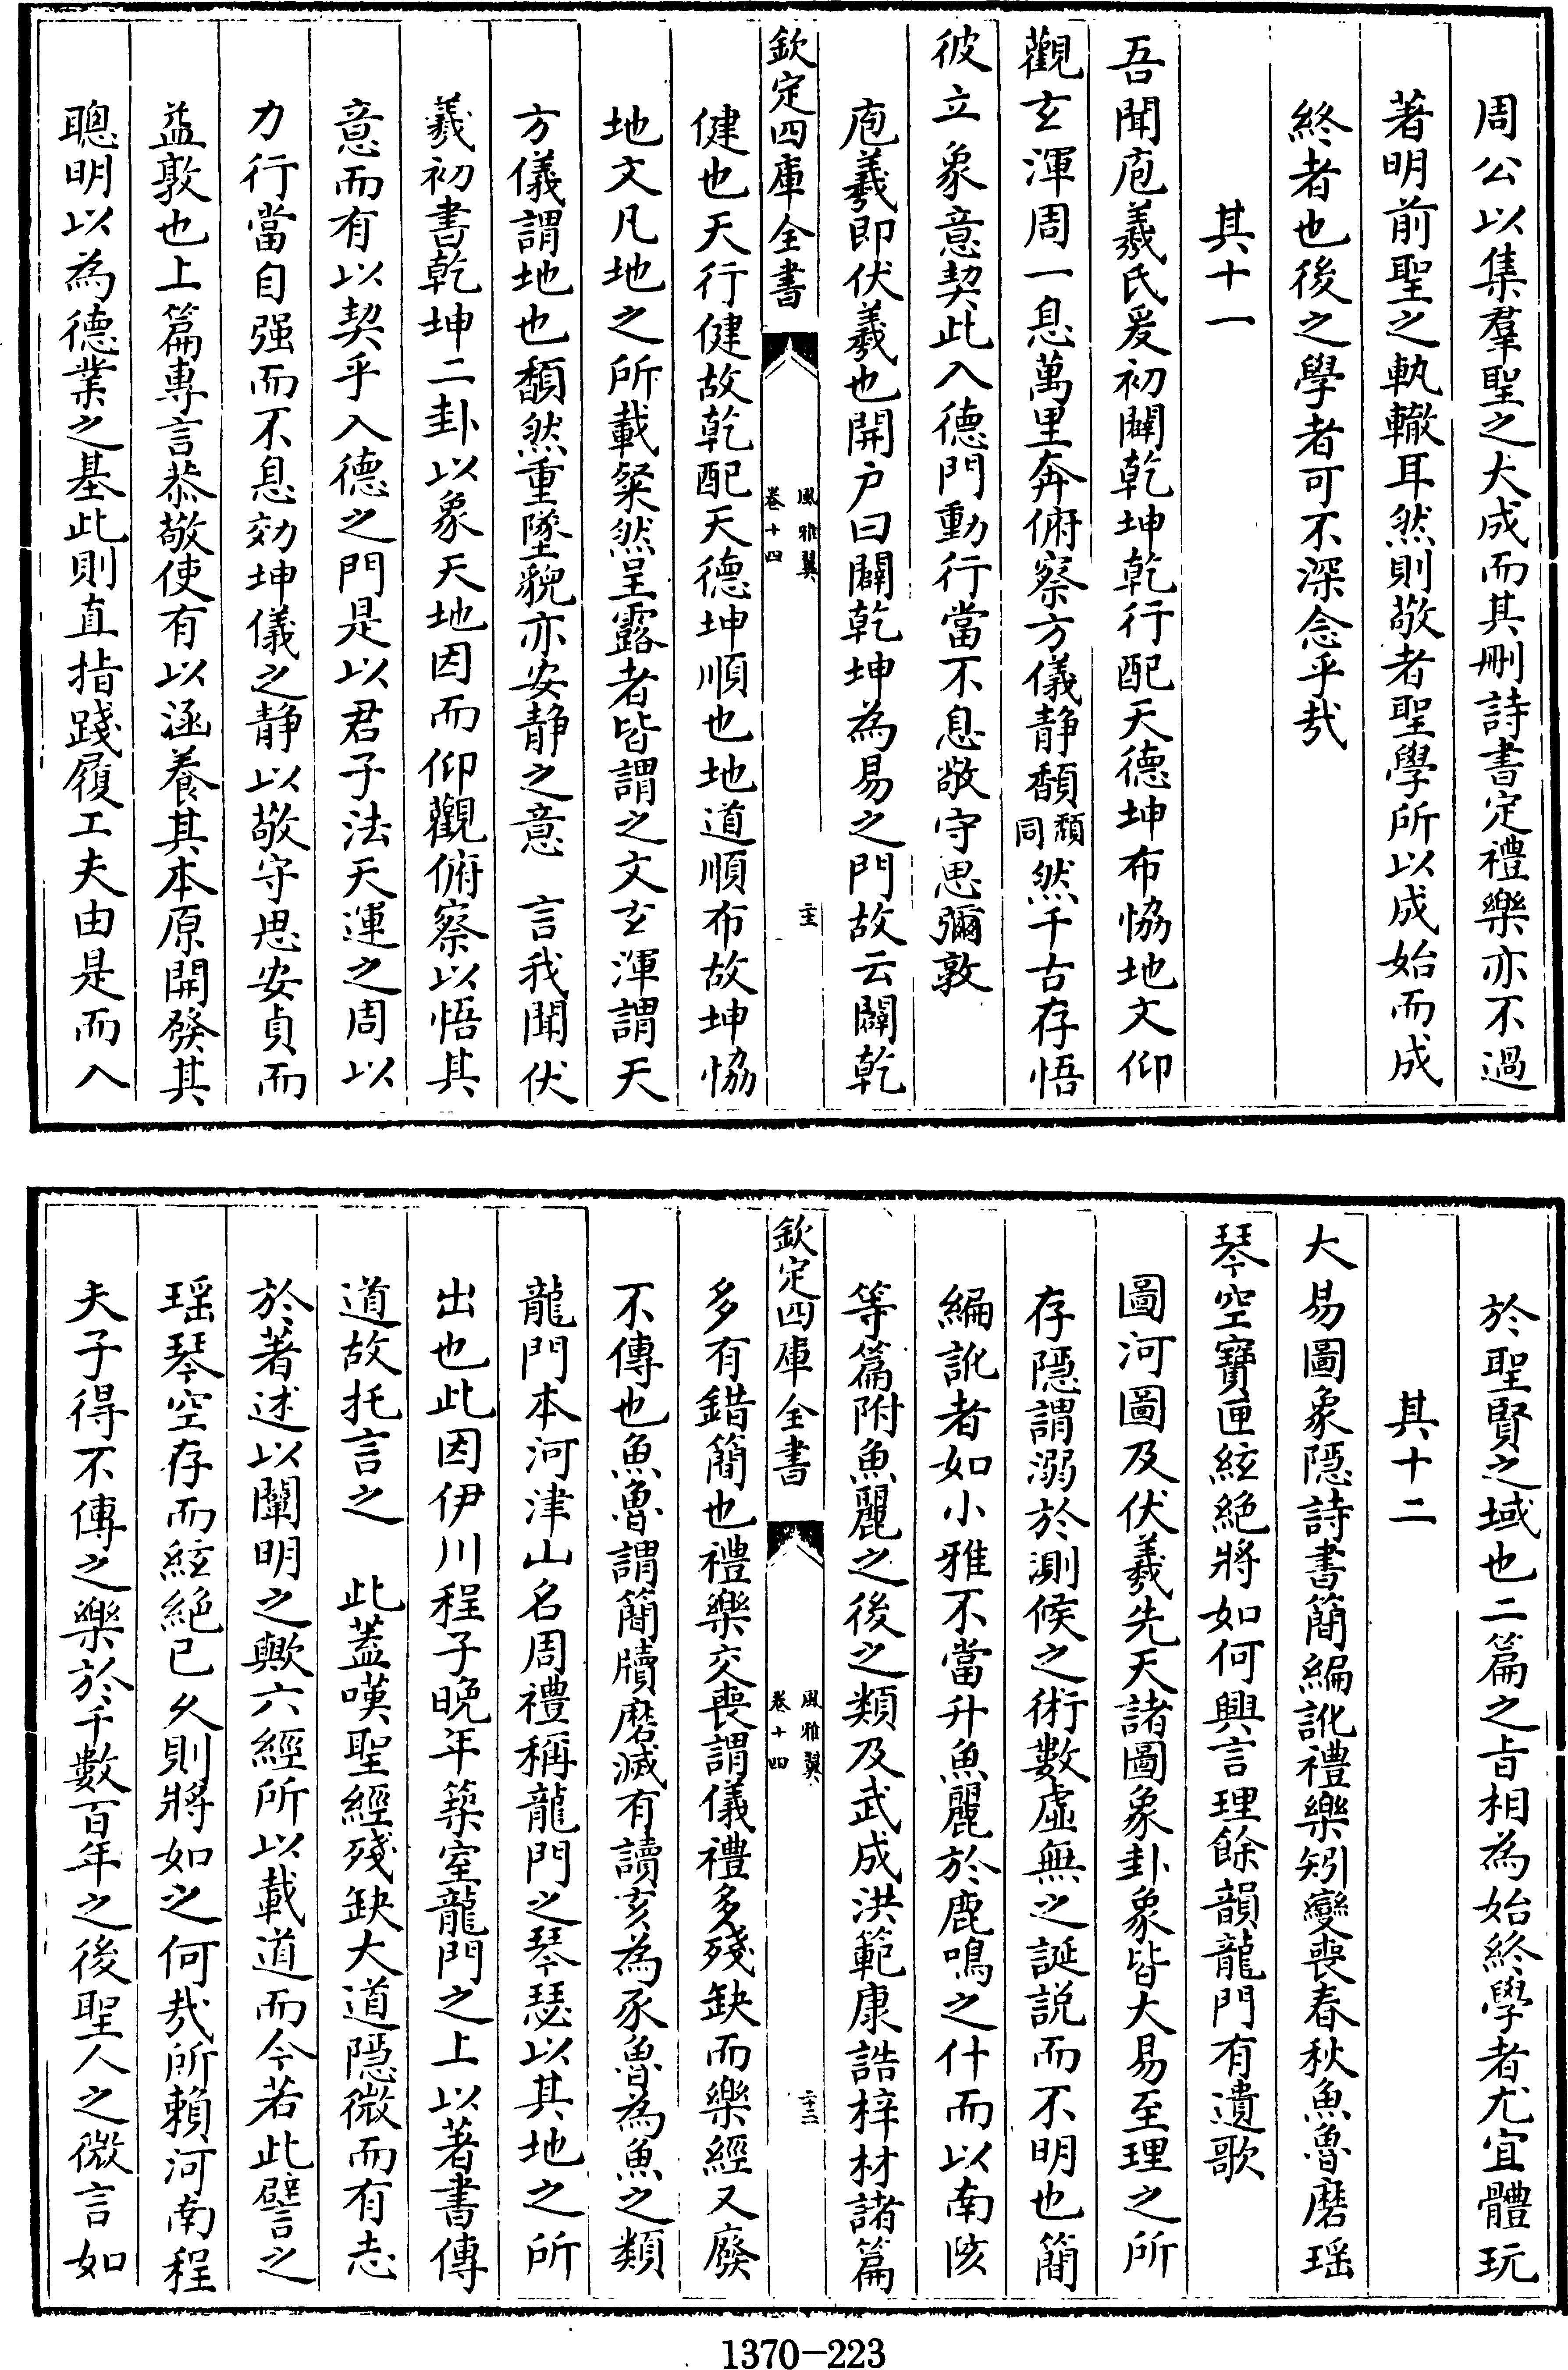 周公以集羣聖之大成而其刪詩書定禮樂亦不過
著明前聖之軌轍耳然則敬者聖學所以成始而成
終者也後之學者可不深念乎哉
其十一
吾聞庖羲氏爰初闢乾坤乾行配天德坤布恊地文仰
觀玄渾周一息萬里奔俯察方儀静頽頹同然千古存悟
彼立象意契此入德門動行當不息敬守思彌敦
庖羲即伏羲也開户曰闢乾坤為易之門故云闢乾
欽定四庫全書
風雅翼
卷十四
二十三
健也天行健故乾配天德坤順也地道順布故坤恊
地文凡地之所載粲然呈露者皆謂之文玄渾謂天
方儀謂地也頽然重墜貌亦安静之意 言我聞伏
羲初書乾坤二卦以象天地因而仰觀俯察以悟其
意而有以契乎入德之門是以君子法天運之周以
力行當自强而不息効坤儀之静以敬守思安貞而
益敦也上篇專言恭敬使有以涵養其本原開發其
聰明以為德業之基此則直指踐履工夫由是而入
於聖賢之域也二篇之旨相為始終學者尤宜體玩
其十二
大易圖象隱詩書簡編訛禮樂矧變喪春秋魚魯磨瑶
琴空寶匣絃絶將如何興言理餘韻龍門有遺歌
圖河圖及伏羲先天諸圖象卦象皆大易至理之所
存隱謂溺於測候之術數虛無之誕説而不明也簡
編訛者如小雅不當升魚麗於鹿鳴之什而以南陔
等篇附魚麗之後之類及武成洪範康誥梓材諸篇
欽定四庫全書
風雅翼
卷十四
多有錯簡也禮樂交喪謂儀禮多殘缺而樂經又廢
不傳也魚魯謂簡牘磨滅有讀亥為豕魯為魚之類
龍門本河津山名周禮稱龍門之琴瑟以其地之所
出也此因伊川程子晩年築室龍門之上以著書傳
道故托言之 此葢嘆聖經殘缺大道隱微而有志
於著述以闡明之歟六經所以載道而今若此譬之
瑶琴空存而絃絶已久則將如之何哉所賴河南程
夫子得不傳之樂於千數百年之後聖人之微言如
1370-223